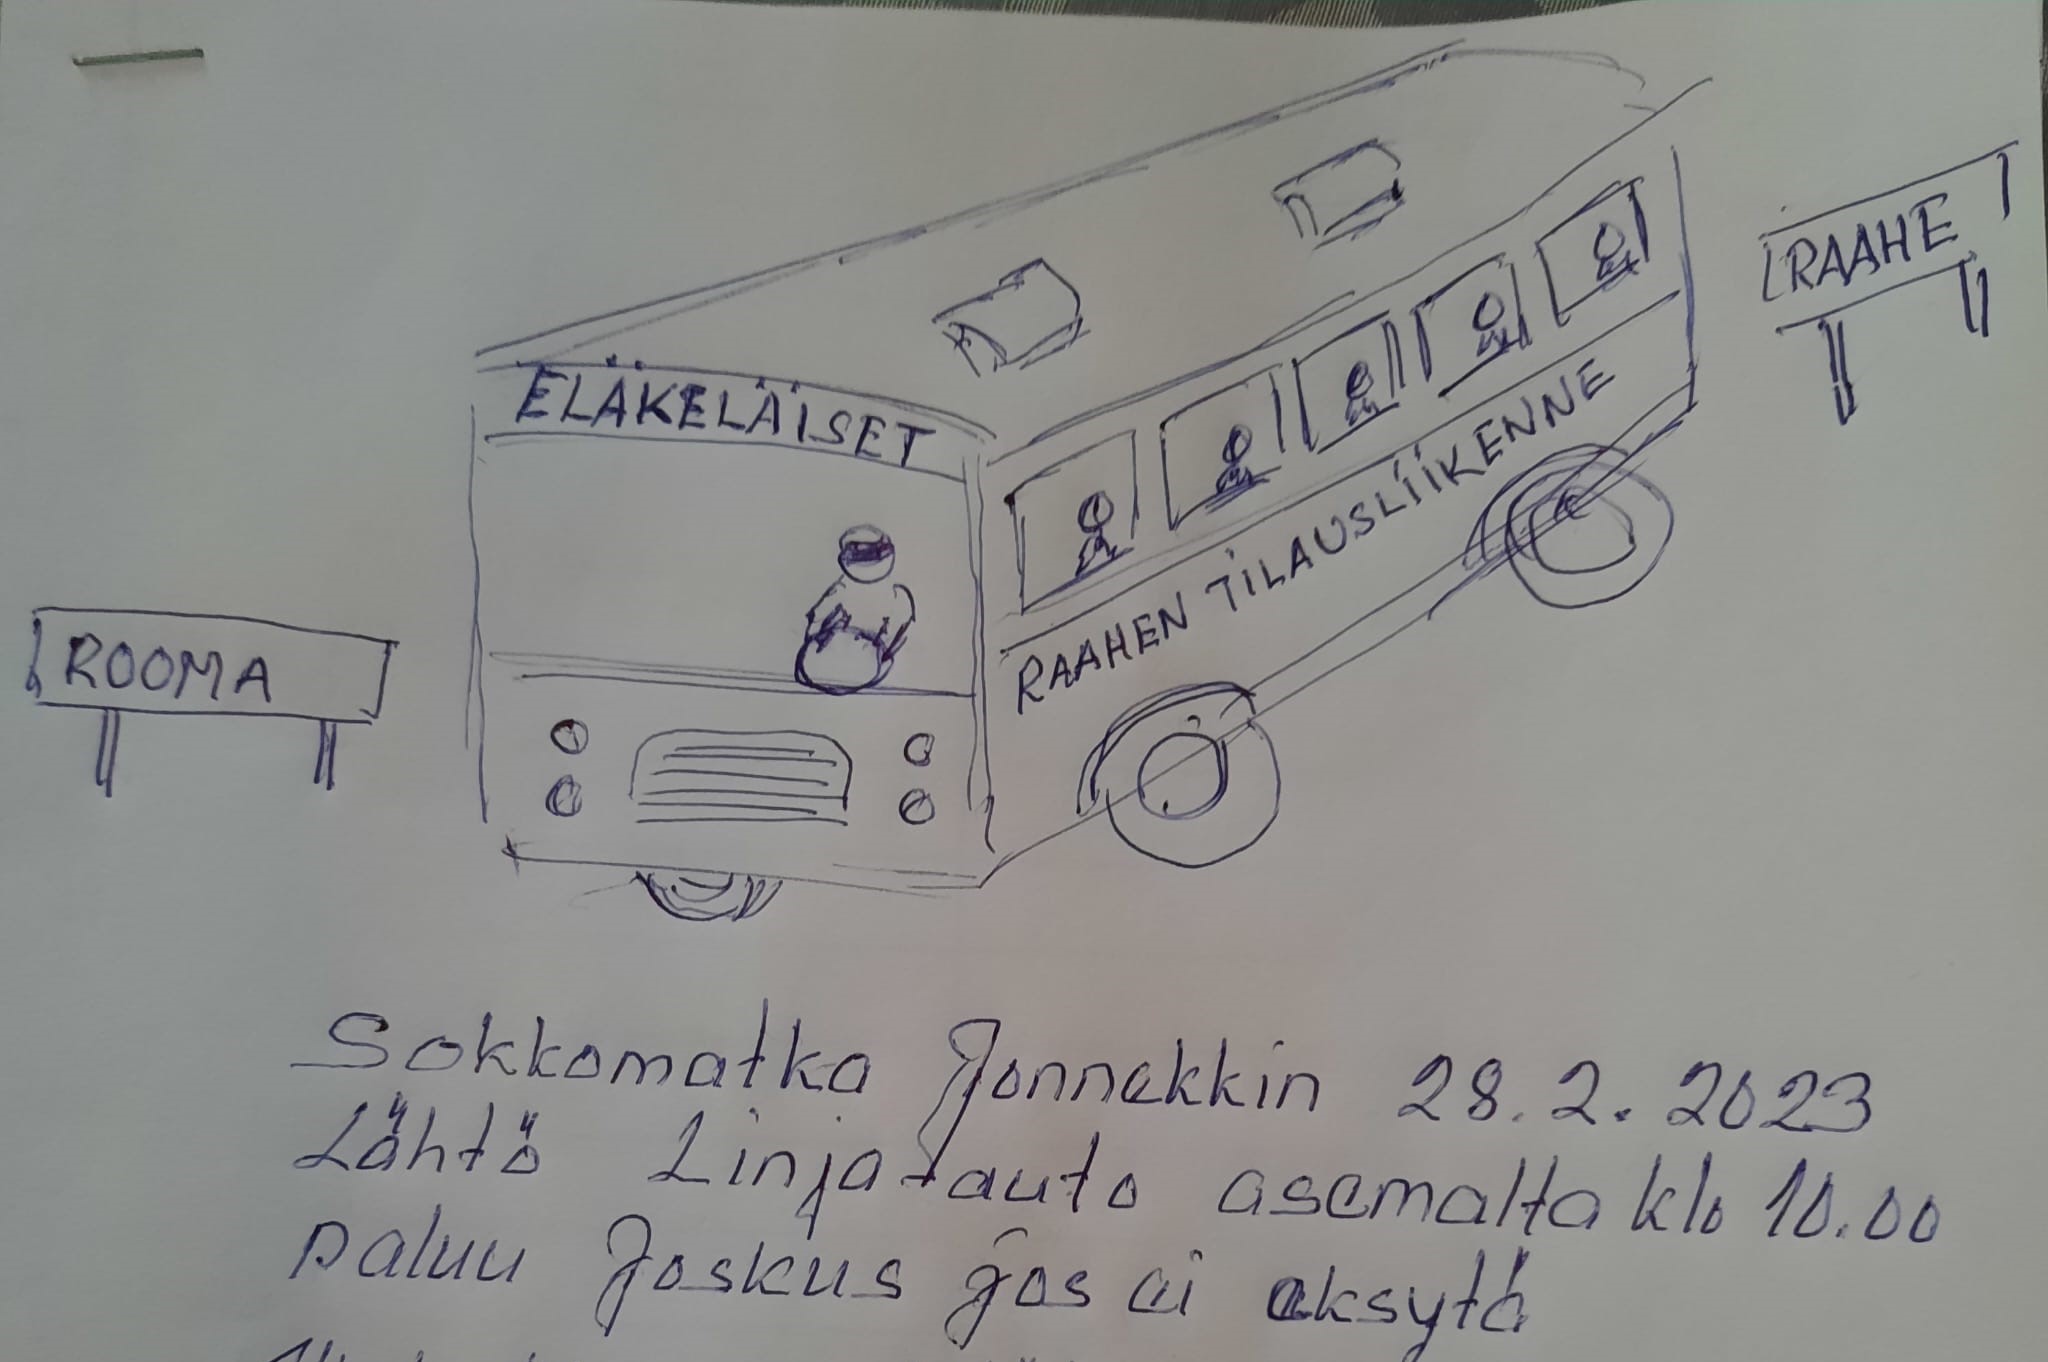 ELÄKELÄISET
RAAHE
RAAHEN TILAUSLIIKENNE
ROOMA
Sokkomatka Jonnekkin 28.2.2023
Lähtö Linja-auto asemalta klo 10.00
paluu Joskus jos ei eksytä